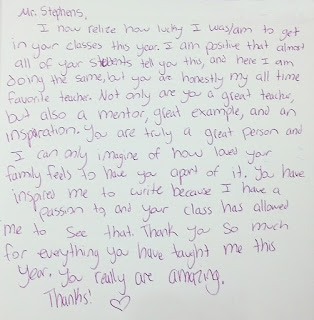 Mr. Stephens,
I now relize how lucky I was/am to get
in your classes this year. I am positive that almost
all of your students tell you this, and here I am
doing the same, but you are honestly my all time
favorite teacher. Not only are you a great teacher,
but also a mentor, great example, and an
inspiration. You are truly a great person and
I can only imagine of how loved your
family feels to have you apart of it. You have
inspired me to write because I have a
passion to, and your class has allowed
me to see that. Thank you so much
for everything you have taught me this
year. You really are amazing.
Thanks! ♡